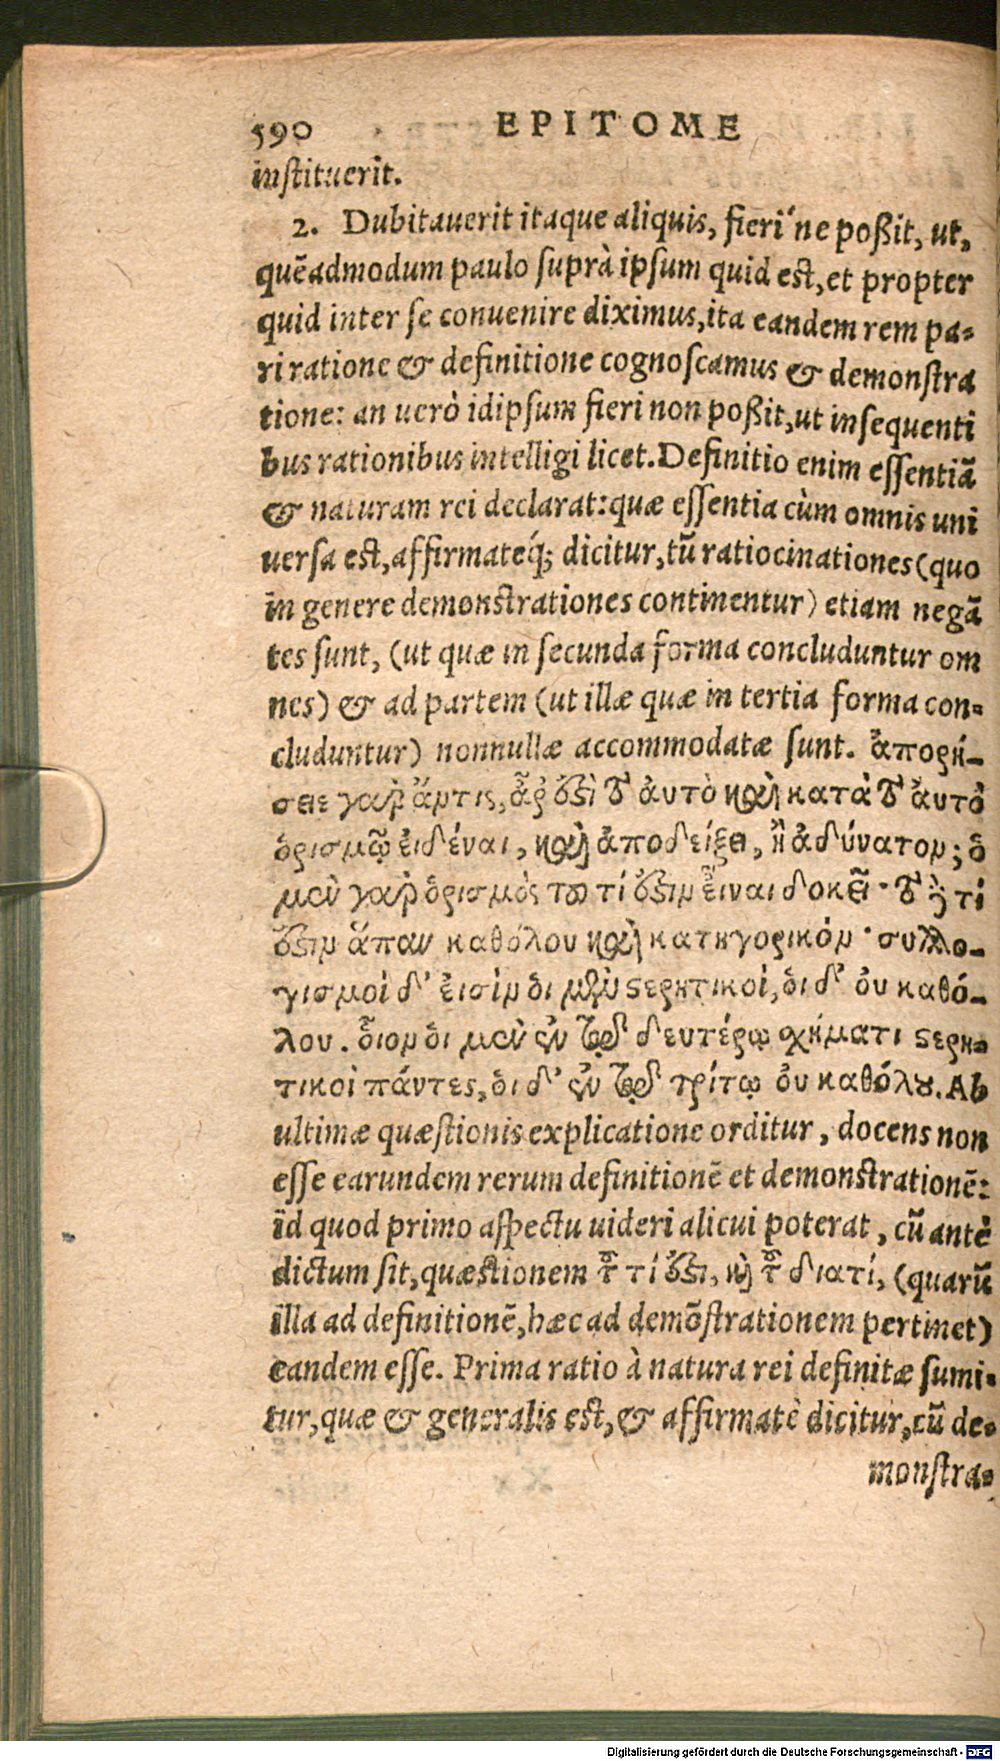 590 EPITOME
instituerit.
2. Dubitauerit itaque aliquis, fieri'ne poßit, ut,
quẽadmodum paulo suprà ipsum quid est, et propter
quid inter se conuenire diximus, ita eandem rem pa-
ri ratione & definitione cognoscamus & demonstra
tione: an uerò idipsum fieri non poßit, ut insequenti
bus rationibus intelligi licet. Definitio enim essentiã
& naturam rei declarat: quæ essentia cùm omnis uni
uersa est, affirmateq́; dicitur, tũ ratiocinationes (quo
in genere demonstrationes continentur) etiam negã
tes sunt, (ut quæ in secunda forma concluduntur om
nes) & ad partem (ut illæ quæ in tertia forma con-
cluduntur) nonnullæ accommodatæ sunt. ἀπορή-
σειε γὰρ ἄν τις, ἆρ' ἐστὶ τὸ ἀυτὸ καὶ κατὰ τὸ ἀυτὸ
ὁρισμῷ ἐιδέναι, καὶ ἀποδείξει, ἢ ἀδύνατον; ὁ
μὲν γὰρ ὁρισμὸς τοῦ τί ἐστιν εἶναι δοκεῖ· τὸ δὲ τί
ἐστιν ἅπαν καθόλου καὶ κατηγορικόν· συλλο-
γισμοὶ δ' ἐισὶν ὁι μὲν στερητικοὶ, ὁι δ' ὀυ καθό-
λου. οἷον ὁι μὲν ἐν τῷ δευτέρῳ σχήματι στερη-
τικοὶ πάντες, ὁι δ' ἐν τῷ τρίτῳ ὀυ καθόλου. Ab
ultimæ quæstionis explicatione orditur, docens non
esse earundem rerum definitionẽ et demonstrationẽ:
id quod primo aspectu uideri alicui poterat, cũ antè
dictum sit, quæstionem τοῦ τί ἐστι, καὶ τοῦ διατί, (quarũ
illa ad definitionẽ, hæc ad demõstrationem pertinet)
eandem esse. Prima ratio à natura rei definitæ sumi-
tur, quæ & generalis est, & affirmatè dicitur, cũ de-
monstra-
Digitalisierung gefördert durch die Deutsche Forschungsgemeinschaft - DFG